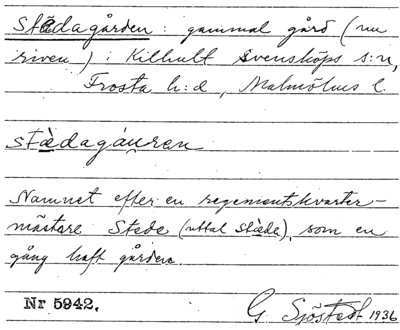 Stedagården: gammal gård (nu
riven) i Kilhult Svensköps s:n,
Frosta h:d, Malmöhus l.
stèdagáuren
Namnet efter en regementskvarter-
mästare Stede (uttal stède), som en
gång haft gården.
Nr 5942. G Sjöstedt 1936